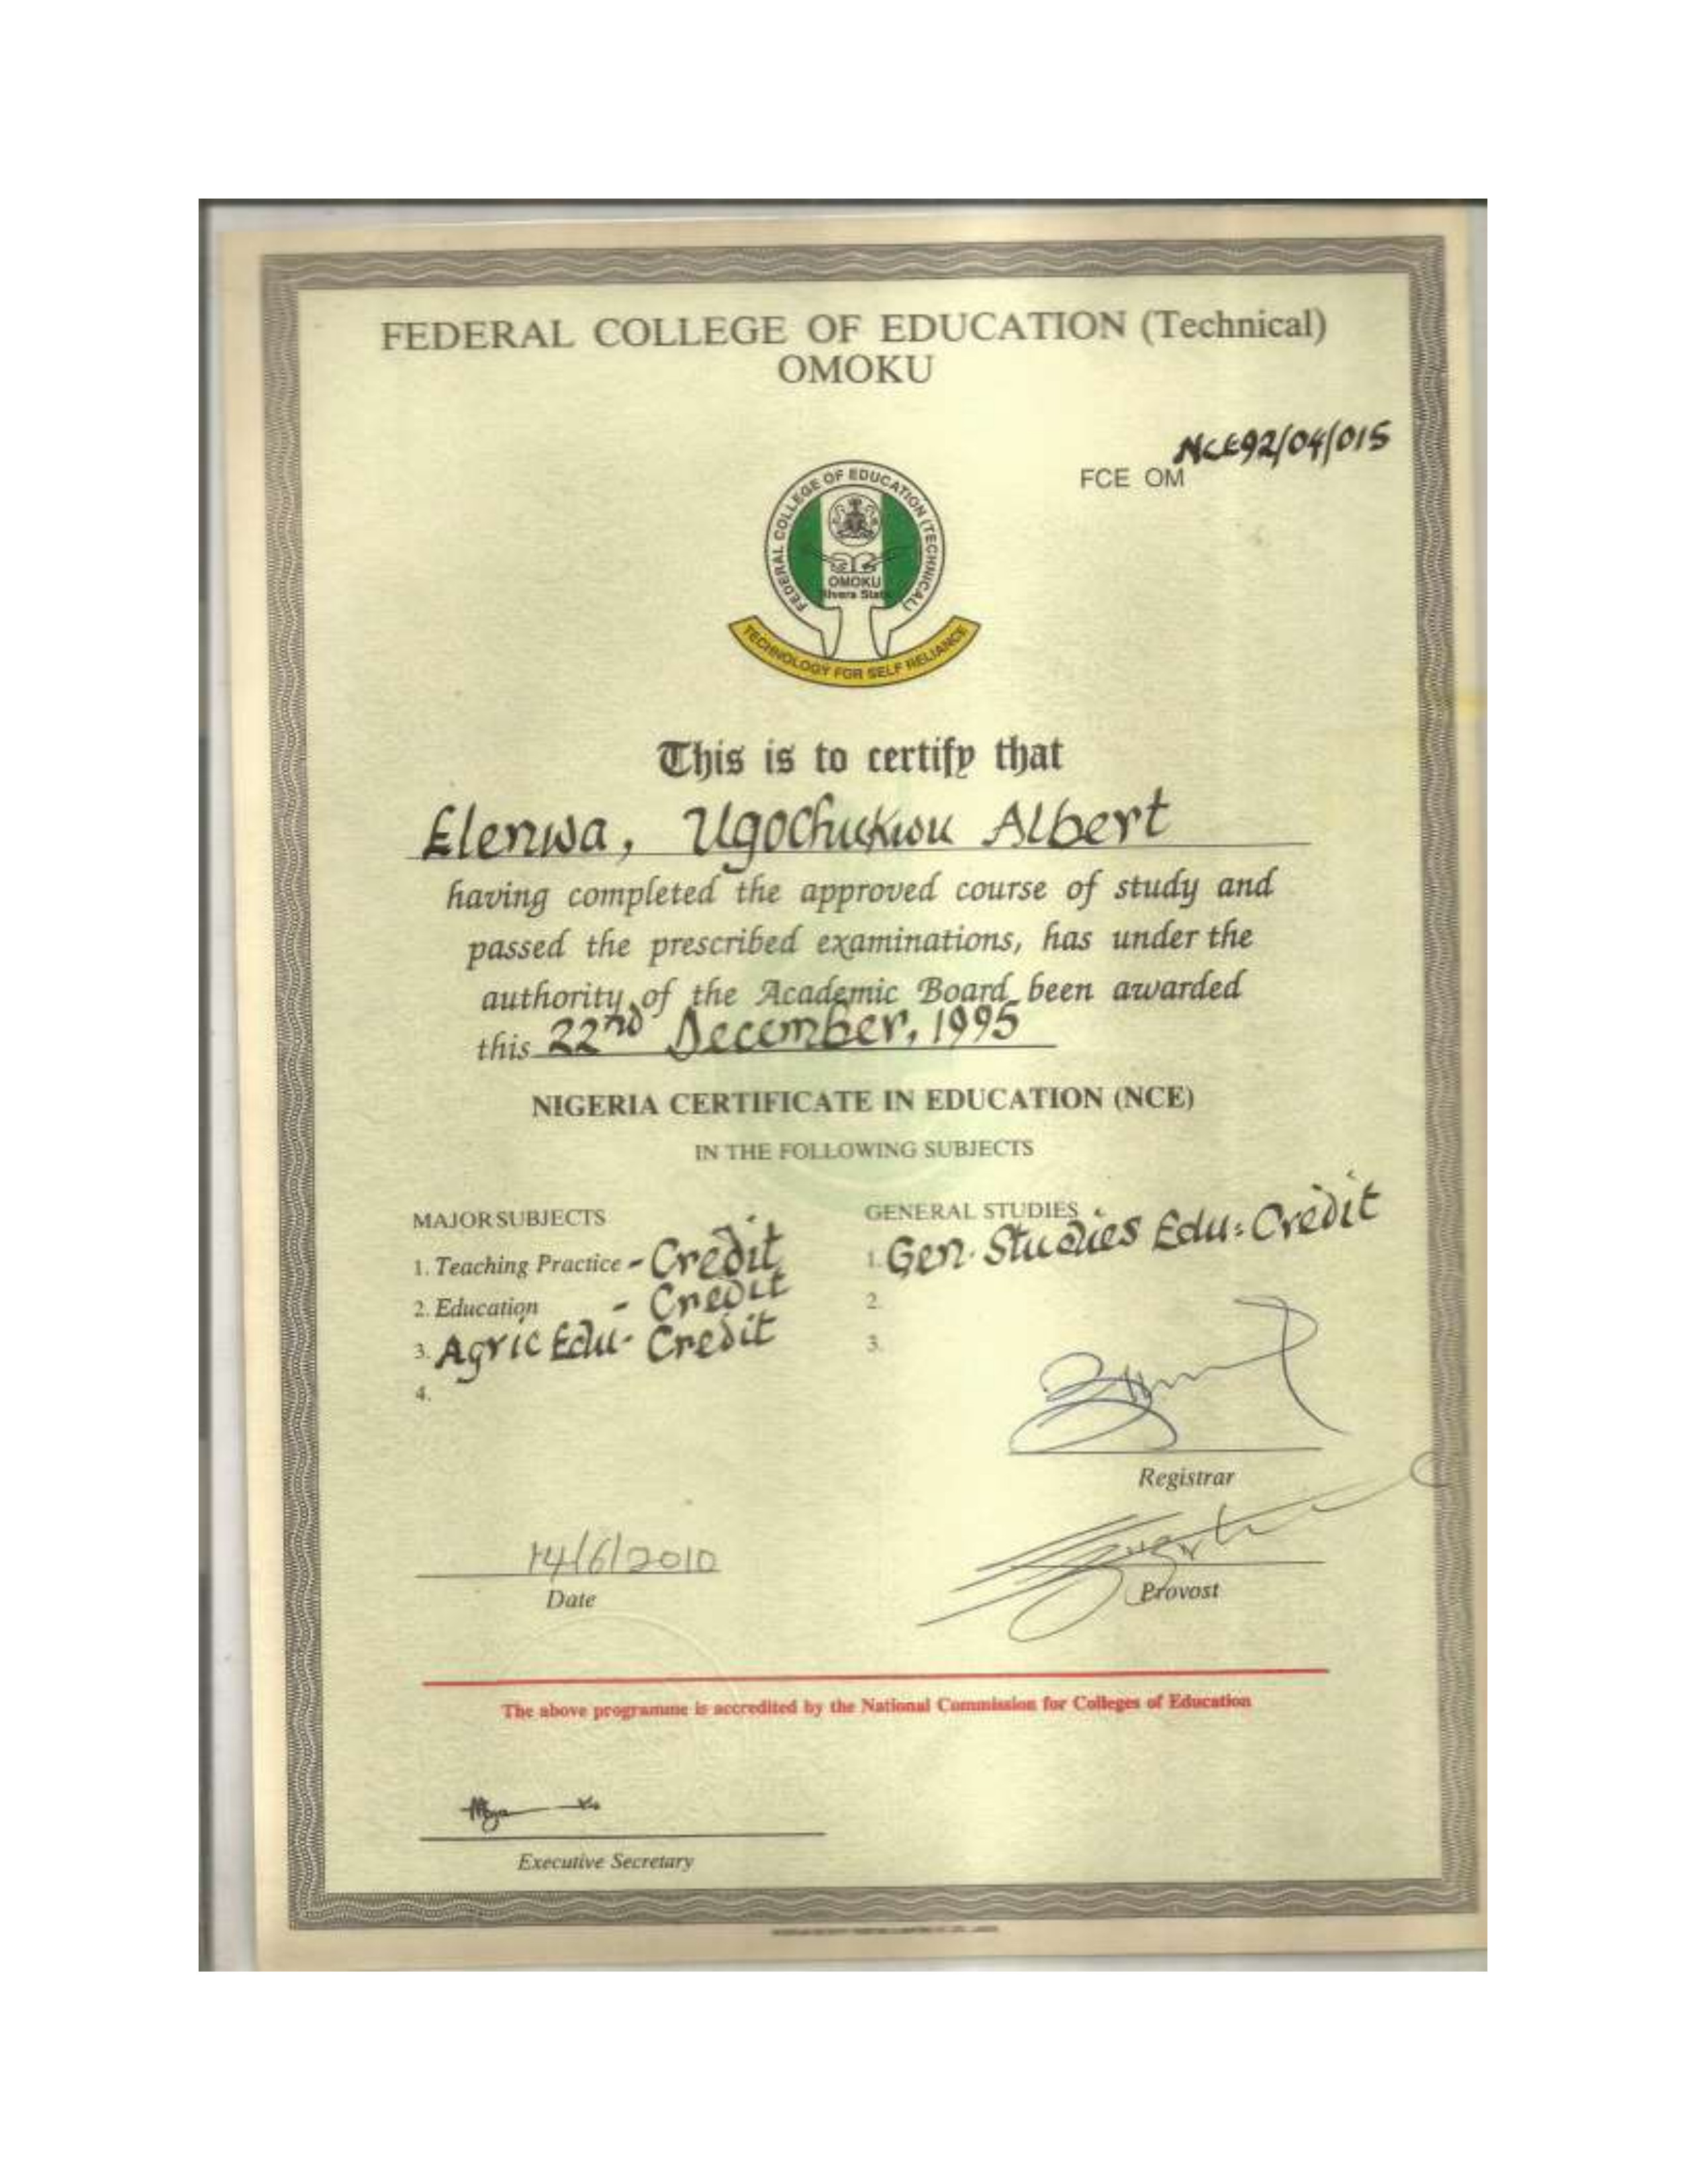 FEDERAL COLLEGE OF EDUCATION (Technical)
OMOKU
NCE92/04/015
FCE OM
FEDERAL COLLEGE OF EDUCATION (TECHNICAL)
OMOKU
Rivers State
TECHNOLOGY FOR SELF RELIANCE
This is to certify that
Elenwa, Ugochukwu Albert
having completed the approved course of study and
passed the prescribed examinations, has under the
authority of the Academic Board been awarded
this 22nd December, 1995
NIGERIA CERTIFICATE IN EDUCATION (NCE)
IN THE FOLLOWING SUBJECTS
MAJOR SUBJECTS
1. Teaching Practice - Credit
2. Education - Credit
3. Agric Edu - Credit
4.
GENERAL STUDIES
1. Gen. Studies Edu: Credit
2.
3.
Registrar
14/6/2010
Date
Provost
The above programme is accredited by the National Commission for Colleges of Education
Executive Secretary